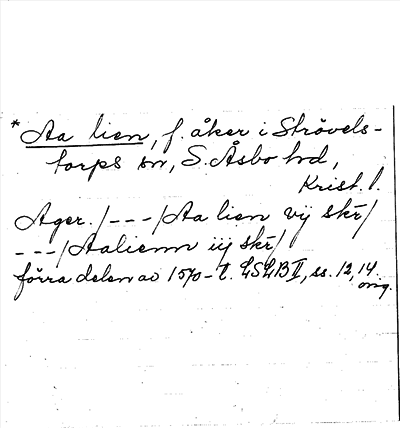 * Aa lien, f. åker i Strövels-
torps sn, S. Åsbo hd,
Krist. l.
Ager. /---/ Aa lien vij skr/
---/ Aalienn iij skr/
förra delen av 1570-t. LSLB II, ss. 12, 14
orig.